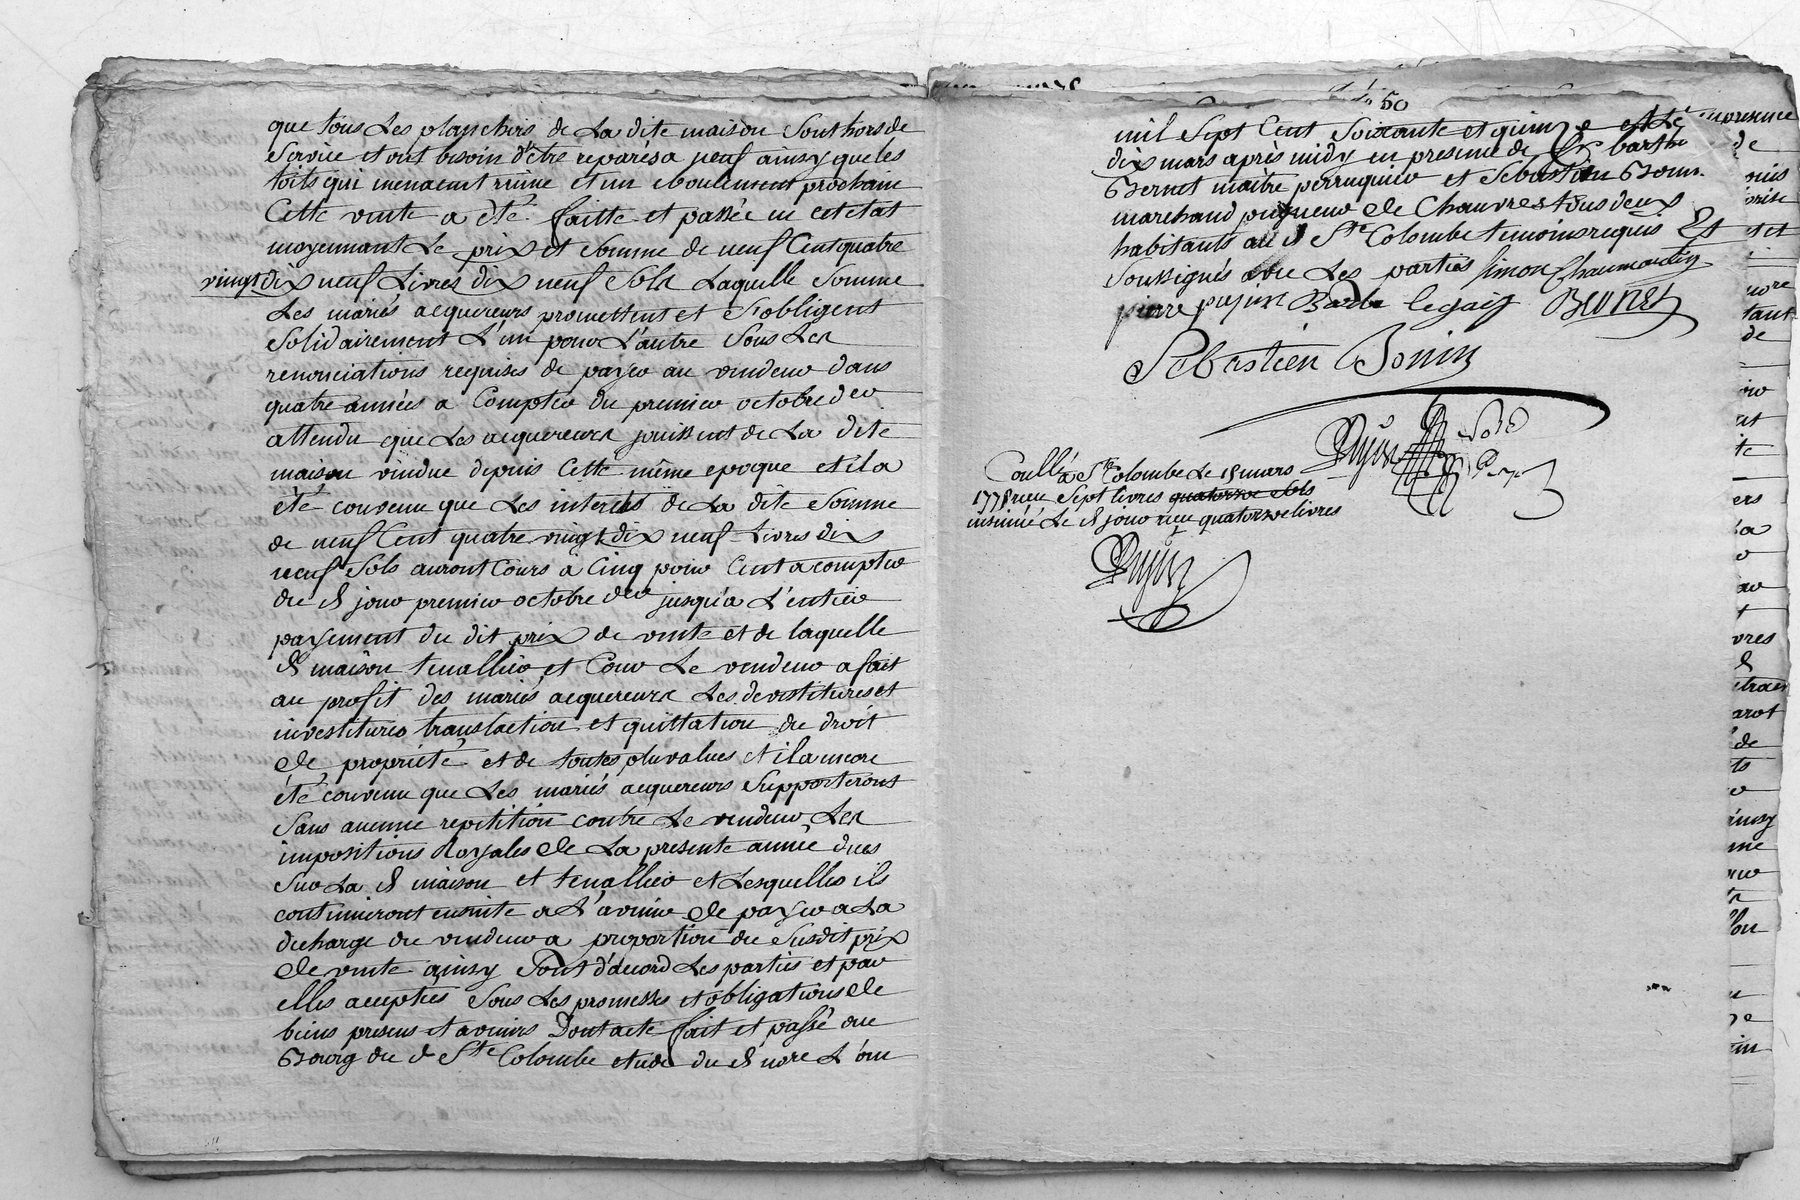 que tous les planchers de la dite maison sont hors de
service et ont besoin d'etre reparés a neuf ainsy que les
toits qui menacent ruine et un eboulement prochain
Cette vente a été faitte et passée en cet etat
moyennant le prix et somme de neuf Cent quatre
vingt dix neuf livres dix neuf sols laquelle somme
les mariés acquereurs promettent et s'obligent
solidairement l'un pour l'autre sous les
renonciations requises de payer au vendeur dans
quatre années a Compter du premier octobre der
attendu que les acquereurs jouissent de la dite
maison vendue depuis cette même epoque et il a
été convenu que les interets de la dite somme
de neuf Cent quatre vingt dix neuf livres dix
neuf sols auront Cours a Cinq pour Cent a compter
du d jour premier octobre der jusqu'a l'entier
payement du dit prix de vente et de laquelle
d maison tenallier et Cour le vendeur a fait
au profit des mariés acquereurs les devestitures et
investitures translaction et quittation du droit
de propriété et de toutes pluvalues et il a encore
été convenu que les mariés acquereurs supporteront
sans aucune repetition contre le vendeur les
impositions Royales de la presente année dues
sur la d maison et tenallier et lesquelles ils
continueront ensuite a l'avenir de payer a la
decharge du vendeur a proportion du susdit prix
de vente ainsy sont d'acord les parties et par
elles acceptées sous les promesses et obligations de
biens presens et avenirs Dont acte fait et passé au
Bourg du d Ste Colombe etude du d nore l'an
50
mil sept Cent soixante et quinze et le
dix mars après midy en presence de Sr barth
Bernet maitre perruquier et Sebastien Bonin
marchand pigneur de Chanvres tous deux
habitants au d Ste Colombe temoins requis Et
soussignés avec les parties simon Chaumartin
pierre pujin Barbe legais Bernet
Sebastien Bonin
Pujin
Conllé a Ste Colombe le 15 mars
1775 reçu sept livres quatorze sols
insinué le d jour reçu quatorze livres
Pujin